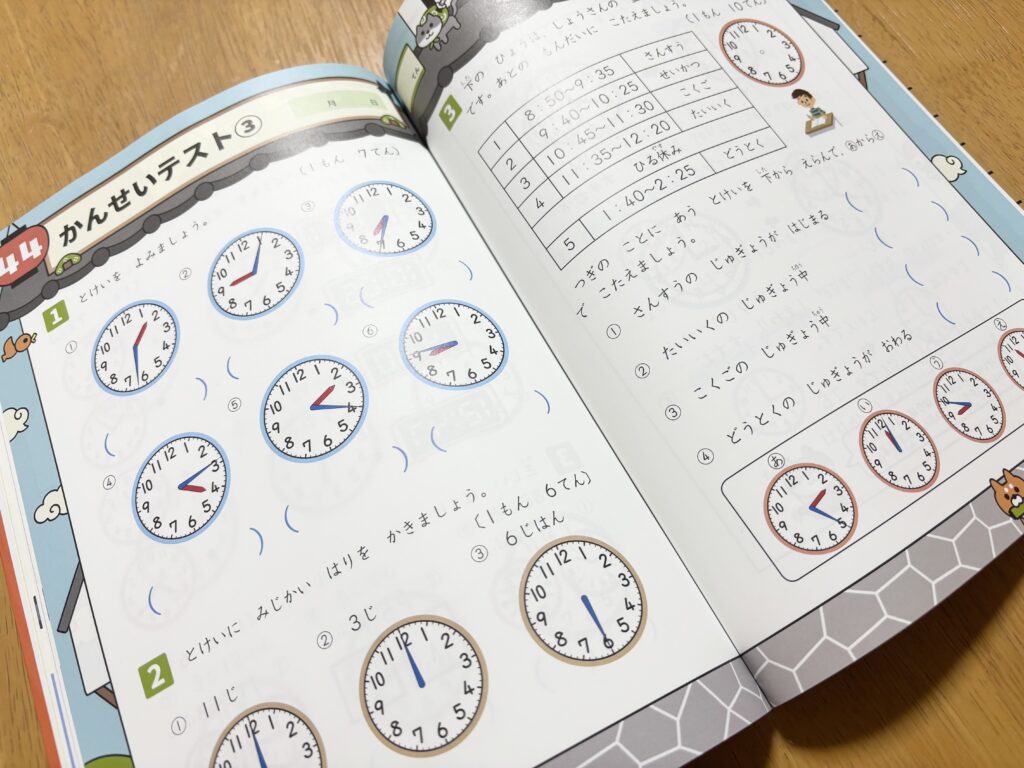 44 かんせいテスト③
月 日
1 とけいを よみましょう。 (1もん 7てん)
①
②
③
④
⑤
⑥
2 とけいに みじかい はりを かきましょう。 (1もん 6てん)
① 11じ
② 3じ
③ 6じはん
3 下の ひょうは、しょうさんの
です。あとの もんだいに こたえましょう。 (1もん 10てん)
1 8:50~9:35 さんすう
2 9:40~10:25 せいかつ
3 10:45~11:30 こくご
4 11:35~12:20 たいいく
ひる休み
5 1:40~2:25 どうとく
つぎの ことに あう とけいを 下から えらんで、あから え
で こたえましょう。
① さんすうの じゅぎょうが はじまる
② たいいくの じゅぎょう中
③ こくごの じゅぎょう中
④ どうとくの じゅぎょうが おわる
あ
い
う
え